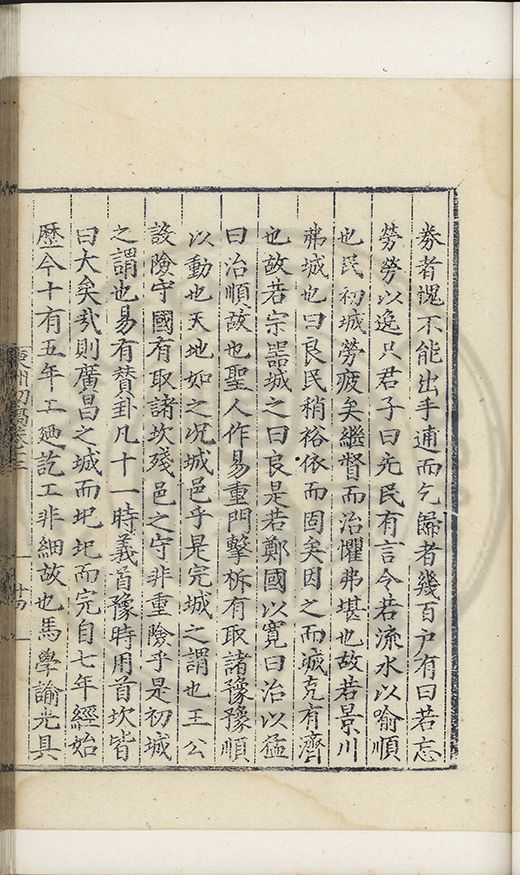 券者愧不能出手逋而乞歸者幾百户有曰若忘
勞勞以逸只君子曰先民有言令若流水以喻順
也民初城勞疲矣繼督而治懼弗堪也故若景川
弗城也曰良民稍裕依而固矣因之而城克有濟
也故若宗器城之曰良是若鄭國以寛曰治以猛
曰治順故也聖人作易重門擊柝有取諸豫豫順
以動也天地如之况城邑乎是完城之謂也王公
設險守國有取諸坎殘邑之守非重險乎是初城
之謂也易有賛卦凡十一時義首豫時用首坎皆
曰大矣哉則廣昌之城而圯圯而完自七年經始
歷今十有五年工廼訖工非細故也馬學諭光具
初稿卷之三